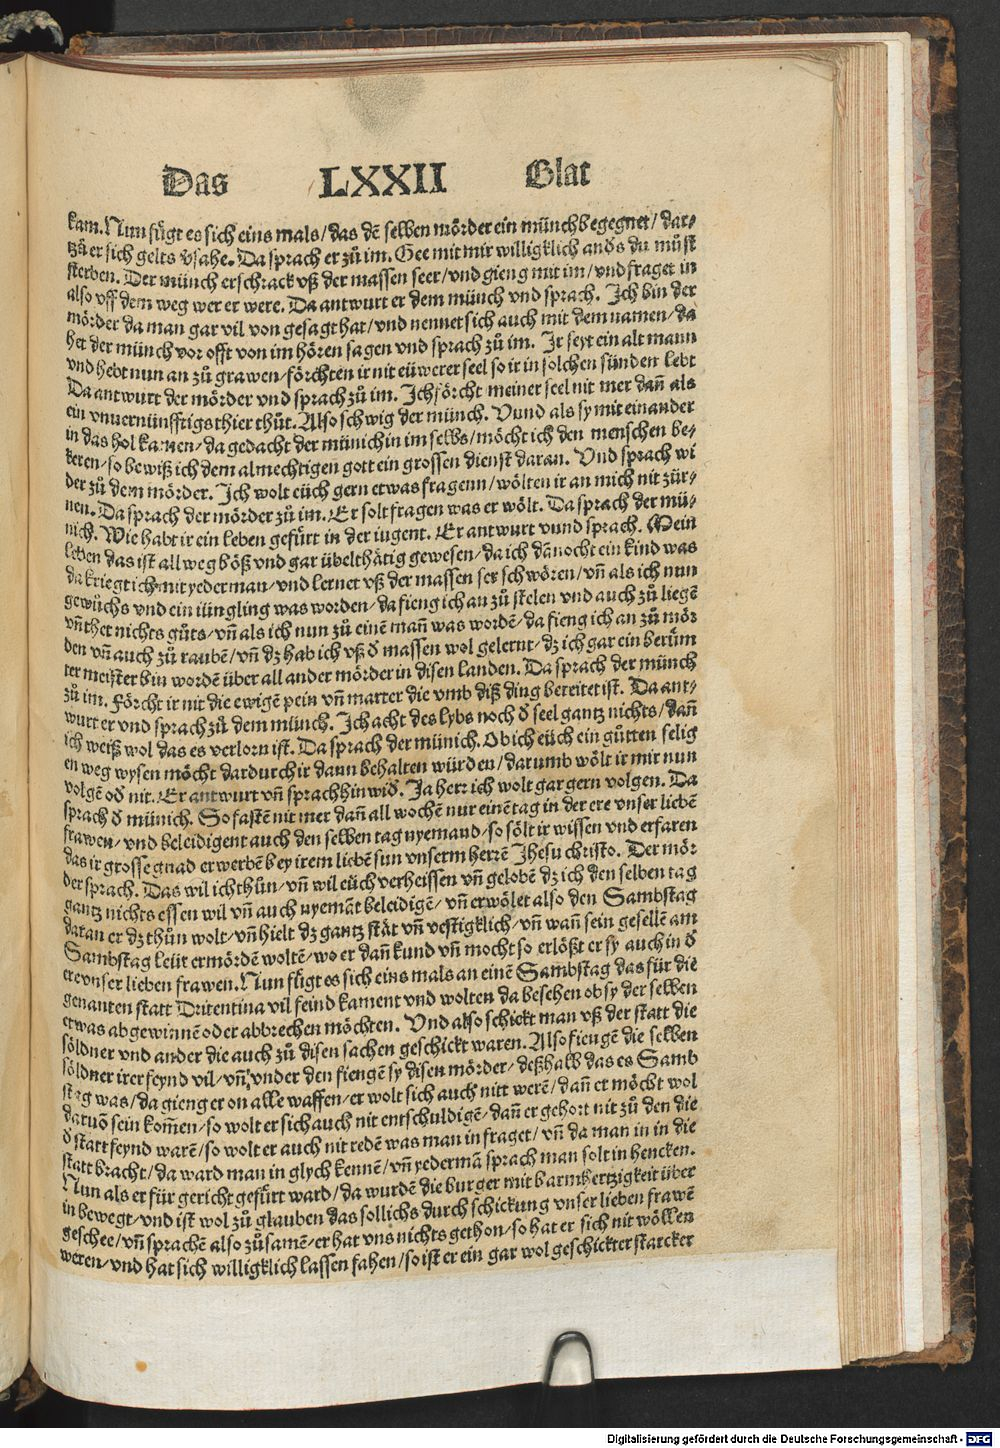 Das LXXII Blat
kam. Nun fügt es sich eins mals / das dē selben mörder ein münch begegnet / dar⸗
zů er sich gelts vsahe. Da sprach er zů im. Gee mit mir willigklich anďs du můst
sterben. Der münch erschrack vß der massen seer / vnd gieng mit im / vnd fraget in
also vff dem weg wer er were. Da antwurt er dem münch vnd sprach. Ich bin der
mörder da man gar vil von gesagt hat / vnd nennet sich auch mit dem namen / da
het der münch vor offt von im hören sagen vnd sprach zů im. Ir seyt ein alt mann
vnd hebt nun an zů grawen / förchten ir nit eüwerer seel so ir in solchen sünden lebt
Da antwurt der mörder vnd sprach zů im. Ich förcht meiner seel nit mer dañ als
ein vnuernünfftigs thier thůt. Also schwig der münch. Vund als sy mit einander
in das hol kamen / da gedacht der münich in im selbs / möcht ich den menschen be⸗
keren / so bewiß ich dem almechtigen gott ein grossen dienst daran. Vnd sprach wi
der zů dem mörder. Ich wolt eüch gern etwas fragenn / wölten ir an mich nit zür⸗
nen. Da sprach der mörder zů im. Er solt fragen was er wölt. Da sprach der mü⸗
nich. Wie habt ir ein leben gefürt in der iugent. Er antwurt vund sprach. Mein
leben das ist allweg böß vnd gar übelthätig gewesen / da ich dānocht ein kind was
da kriegt ich mit yederman / vnd lernet vß der massen ser schwören / vñ als ich nun
gewüchs vnd ein iüngling was worden / da fieng ich an zů stelen vnd auch zů liegē
vñ thet nichts gůts / vñ als ich nun zů einē mañ was wordē / da fieng ich an zů mör
den vñ auch zů raubē / vñ dz hab ich vß ď massen wol gelernt / dz ich gar ein berüm
ter meister bin wordē über all ander mörder in disen landen. Da sprach der münch
zů im. Förcht ir nit die ewigē pein vñ marter die vmb diß ding bereitet ist. Da ant⸗
wurt er vnd sprach zů dem münch. Ich acht des lybs noch ď seel gantz nichts / dañ
ich weiß wol das es verlorn ist. Da sprach der münich. Ob ich eüch ein gůtten selig
en weg wysen möcht dardurch ir dann behalten würden / darumb wölt ir mir nun
volgē oď nit. Er antwurt vñ sprach hinwiď. Ja herr ich wolt gar gern volgen. Da
sprach ď münich. So fastē nit mer dañ all wochē nur einē tag in der ere vnser liebē
frawen / vnd beleidigent auch den selben tag nyemand / so sölt ir wissen vnd erfaren
das ir grosse gnad erwerbē bey irem liebē sun vnserm herrē Jhesu christo. Der mör
der sprach. Das wil ich thůn / vñ wil eüch verheissen vñ gelobē dz ich den selben tag
gantz nichts essen wil vñ auch nyemāt beleidigē / vñ erwölet also den Sambstag
daran er dz thůn wolt / vñ hielt dz gantz stät vñ vestigklich / vñ wañ sein gesellē am
Sambstag leüt ermördē woltē / wo er dañ kund vñ mocht so erlößt er sy auch in ď
ere vnser lieben frawen. Nun fügt es sich eins mals an einē Sambstag das für die
genanten statt Tritentina vil feind kament vnd wolten da besehen ob sy der selben
etwas abgewinnē oder abbrechen möchten. Vnd also schickt man vß der statt die
söldner vnd ander die auch zů disen sachen geschickt waren. Also fiengē die selben
söldner irer feynd vil / vñ vnder den fiengē sy disen mörder / deßhalb das es Samb
stag was / da gieng er on alle waffen / er wolt sich auch nitt werē / dañ er möcht wol
daruō sein kom̄en / so wolt er sich auch nit entschuldigē / dañ er gehort nit zů den die
ď statt feynd warē / so wolt er auch nit redē was man in fraget / vñ da man in in die
statt bracht / da ward man in glych kennē / vñ yedermā sprach man solt in hencken.
Nun als er für gericht gefürt ward / da wurdē die burger mit barmhertzigkeit über
in bewegt / vnd ist wol zů glauben das sollichs durch schickung vnser lieben frawē
geschee / vñ sprachē also zůsamē / er hat vns nichts gethon / so hat er sich nit wöllen
weren / vnd hat sich willigklich lassen fahen / so ist er ein gar wol geschickter starcker
Digitalisierung gefördert durch die Deutsche Forschungsgemeinschaft - DFG